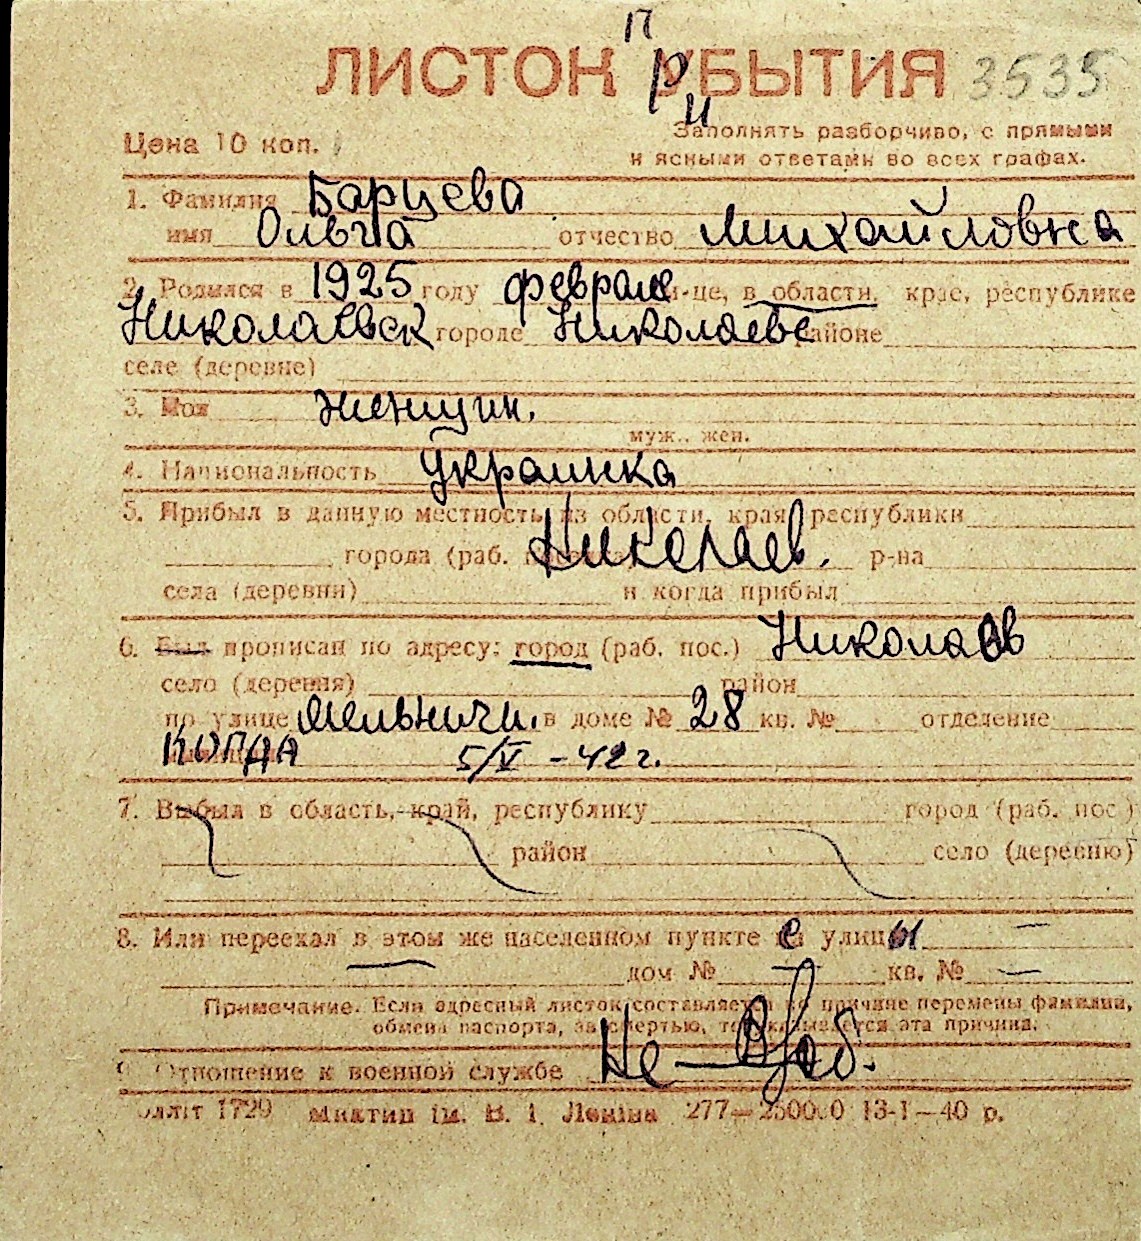 ЛИСТОК прИБЫТИЯ 3535
Цена 10 коп.
Заполнять разборчиво, с прямыми
и ясными ответами во всех графах.
1. Фамилия Барцева
имя Ольга отчество Михайловна
2. Родился в 1925 году феврале м-це, в области, крае, республике
Николаевск городе Николаеве районе
селе (деревне)
3. Пол женщин.
муж., жен.
4. Национальность украинка
5. Прибыл в данную местность из области, края, республики
города (раб. поселка) Николаев. р-на
села (деревни) и когда прибыл
6. Был прописан по адресу: город (раб. пос.) Николаев
село (деревня) район
по улице Мельничн. в доме № 28 кв. № отделение
КОГДА 5/V -42 г.
7. Выбыл в область, край, республику город (раб. пос.)
район село (деревню)
8. Или переехал в этом же населенном пункте с улицы —
дом № — кв. № —
Примечание. Если адресный листок составляется по причине перемены фамилии,
обмена паспорта, за смертью, то указывается эта причина.
9. Отношение к военной службе Не —
1729 277—250000 13-I—40 р.